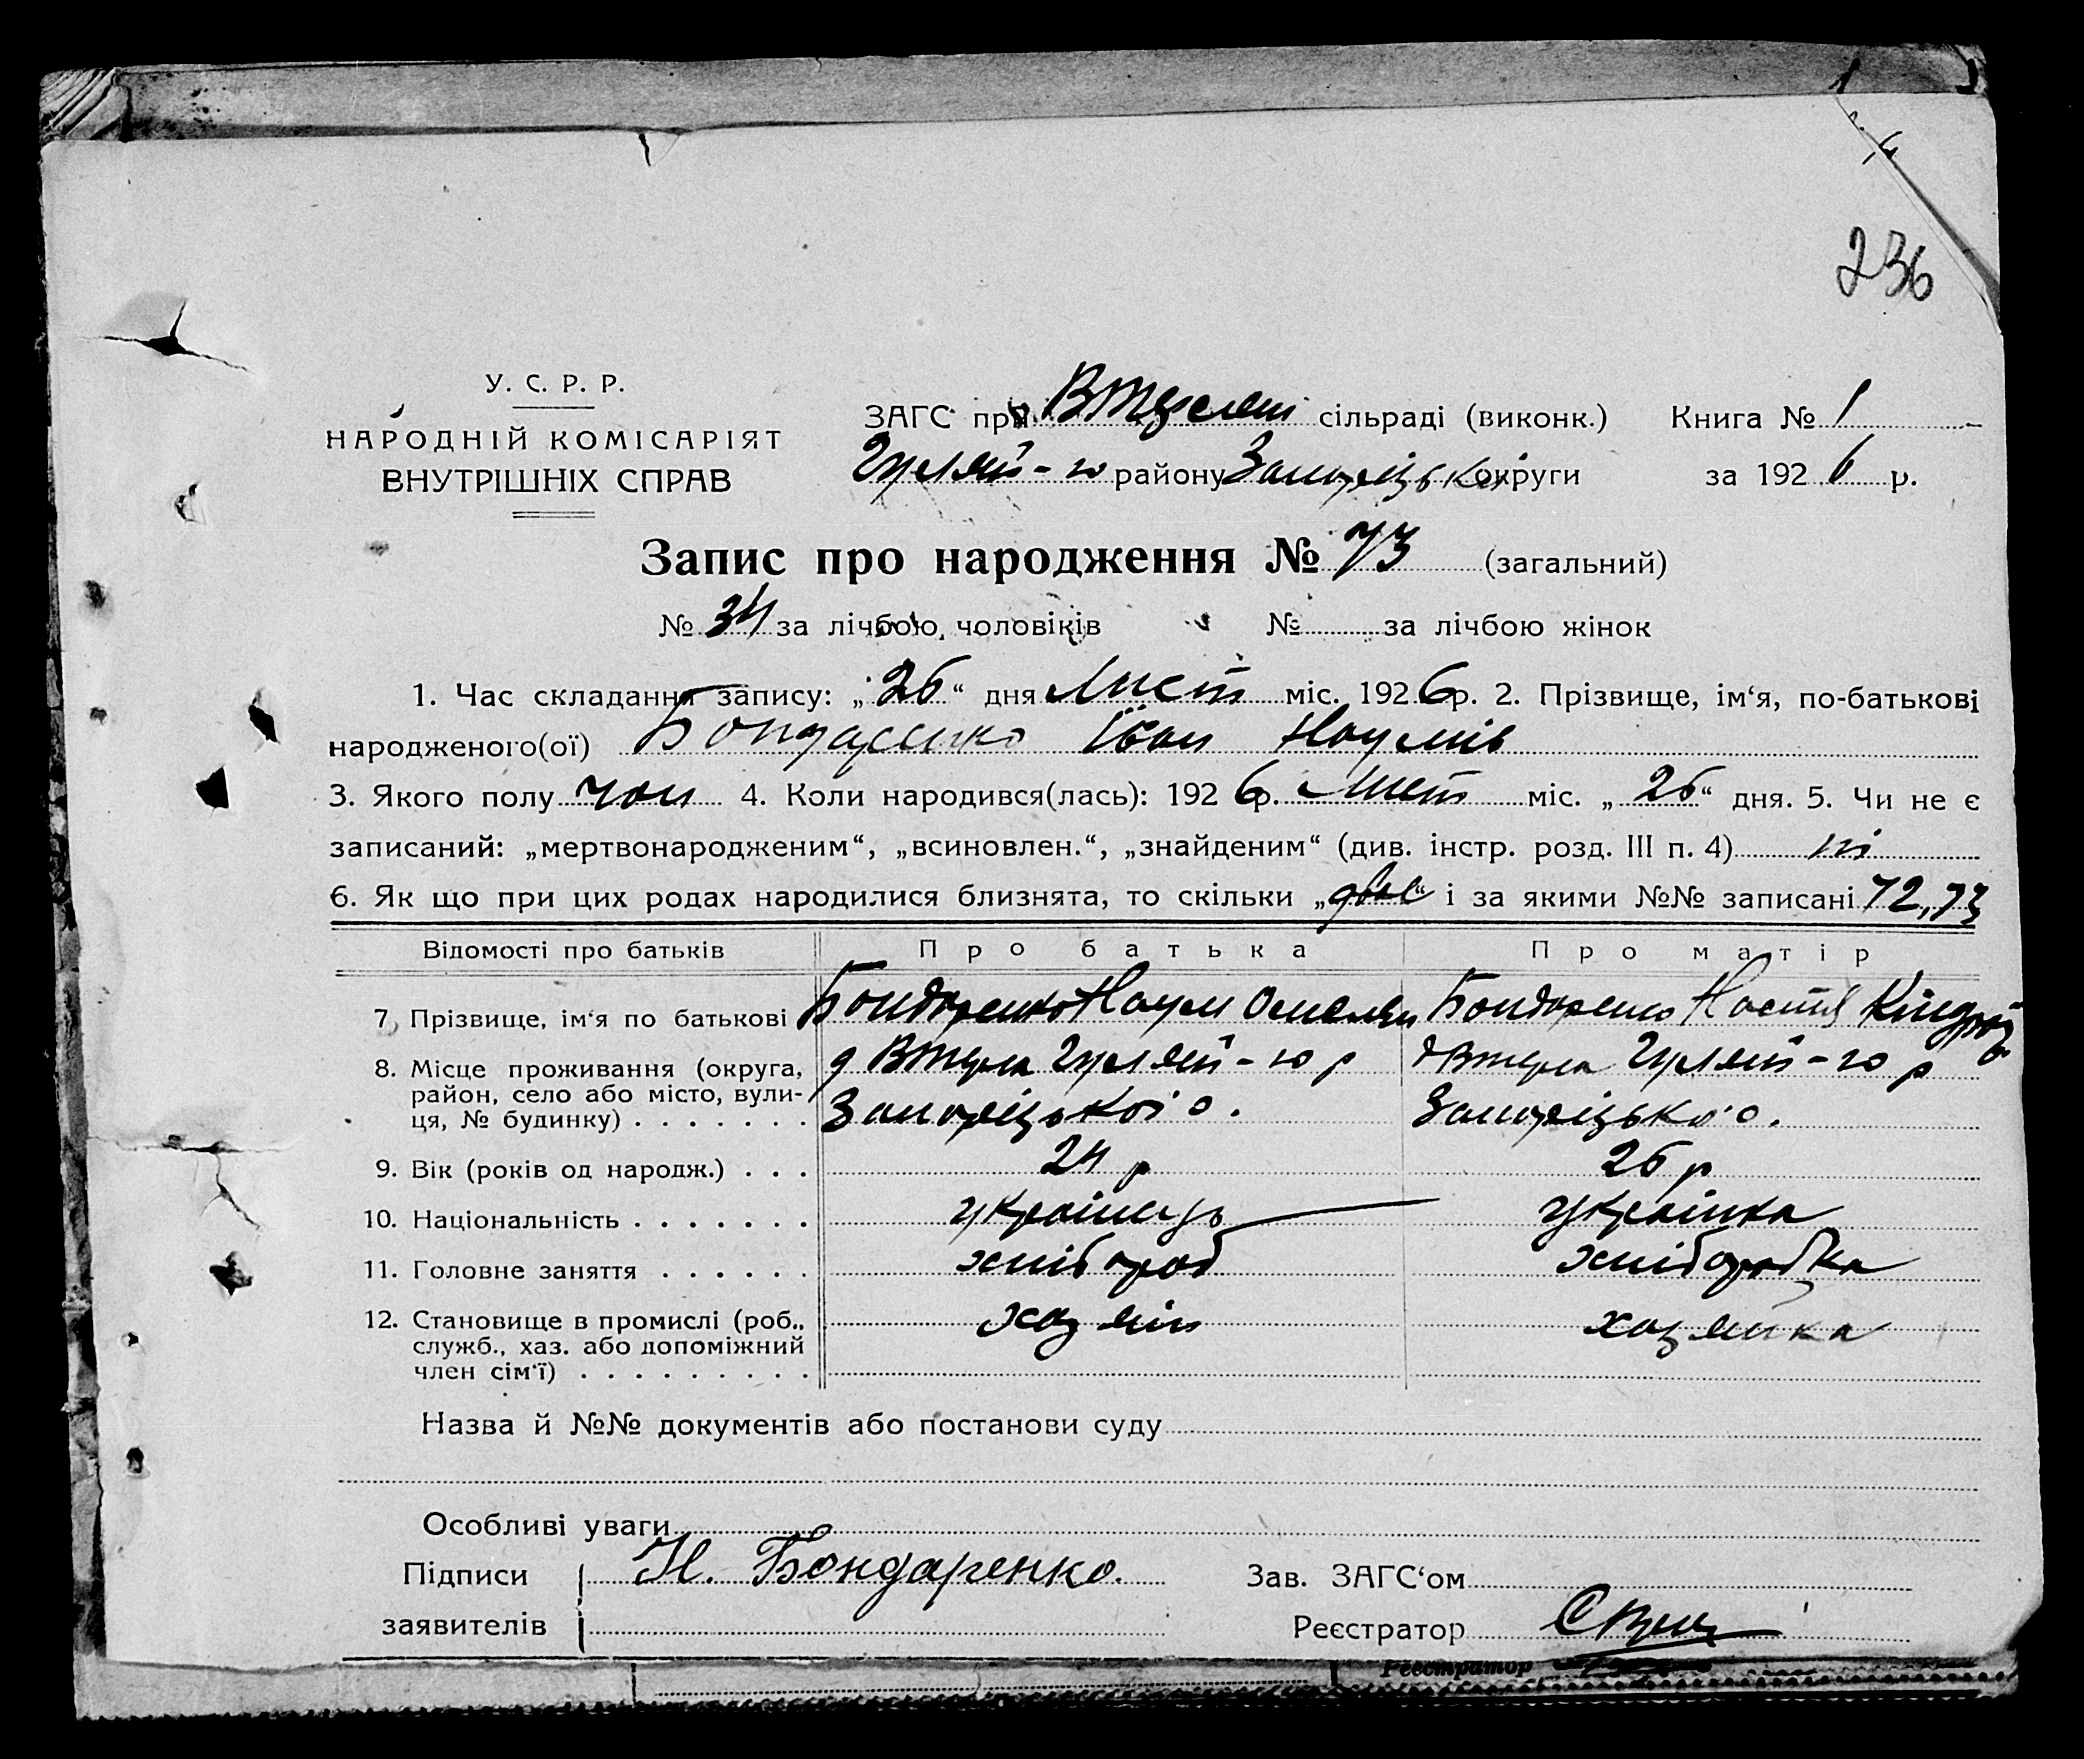 236
У. С. Р. Р.
НАРОДНІЙ КОМІСАРІЯТ
ВНУТРІШНІХ СПРАВ
ЗАГС при сільраді (виконк.) Книга № 1
Гуляй-го району Запоріцької округи за 1926 р.
Запис про народження № 73 (загальний)
№ 34 за лічбою чоловіків № за лічбою жінок
1. Час складання запису: „26“ дня Лист міс. 1926 р. 2. Прізвище, ім‘я, по-батькові
народженого(ої) Бондаренко Іван Наумів
3. Якого полу чол 4. Коли народився(лась): 1926 р. Лист міс. „26“ дня. 5. Чи не є
записаний: „мертвонародженим“, „всиновлен.“, „знайденим“ (див. інстр. розд. III п. 4) ні
6. Як що при цих родах народилися близнята, то скільки „двоє“ і за якими №№ записані 72, 73
Відомості про батьків Про батька Про матір
7. Прізвище, ім‘я по батькові Бондаренко Наум Омелян Бондаренко Настя
8. Місце проживання (округа, Гуляй-го р Гуляй-го р
район, село або місто, вули-
ця, № будинку) . . . . . . . Запоріцької о. Запоріцької о.
9. Вік (років од народж.) . . . 24 р 26 р
10. Національність . . . . . . . українець українка
11. Головне заняття . . . . . . хлібороб хліборобка
12. Становище в промислі (роб., хазяїн хазяйка
служб., хаз. або допоміжний
член сім‘ї) . . . . . . . . .
Назва й №№ документів або постанови суду
Особливі уваги
Підписи Н. Бондаренко. Зав. ЗАГС‘ом
заявителів Реєстратор
Реєстратор